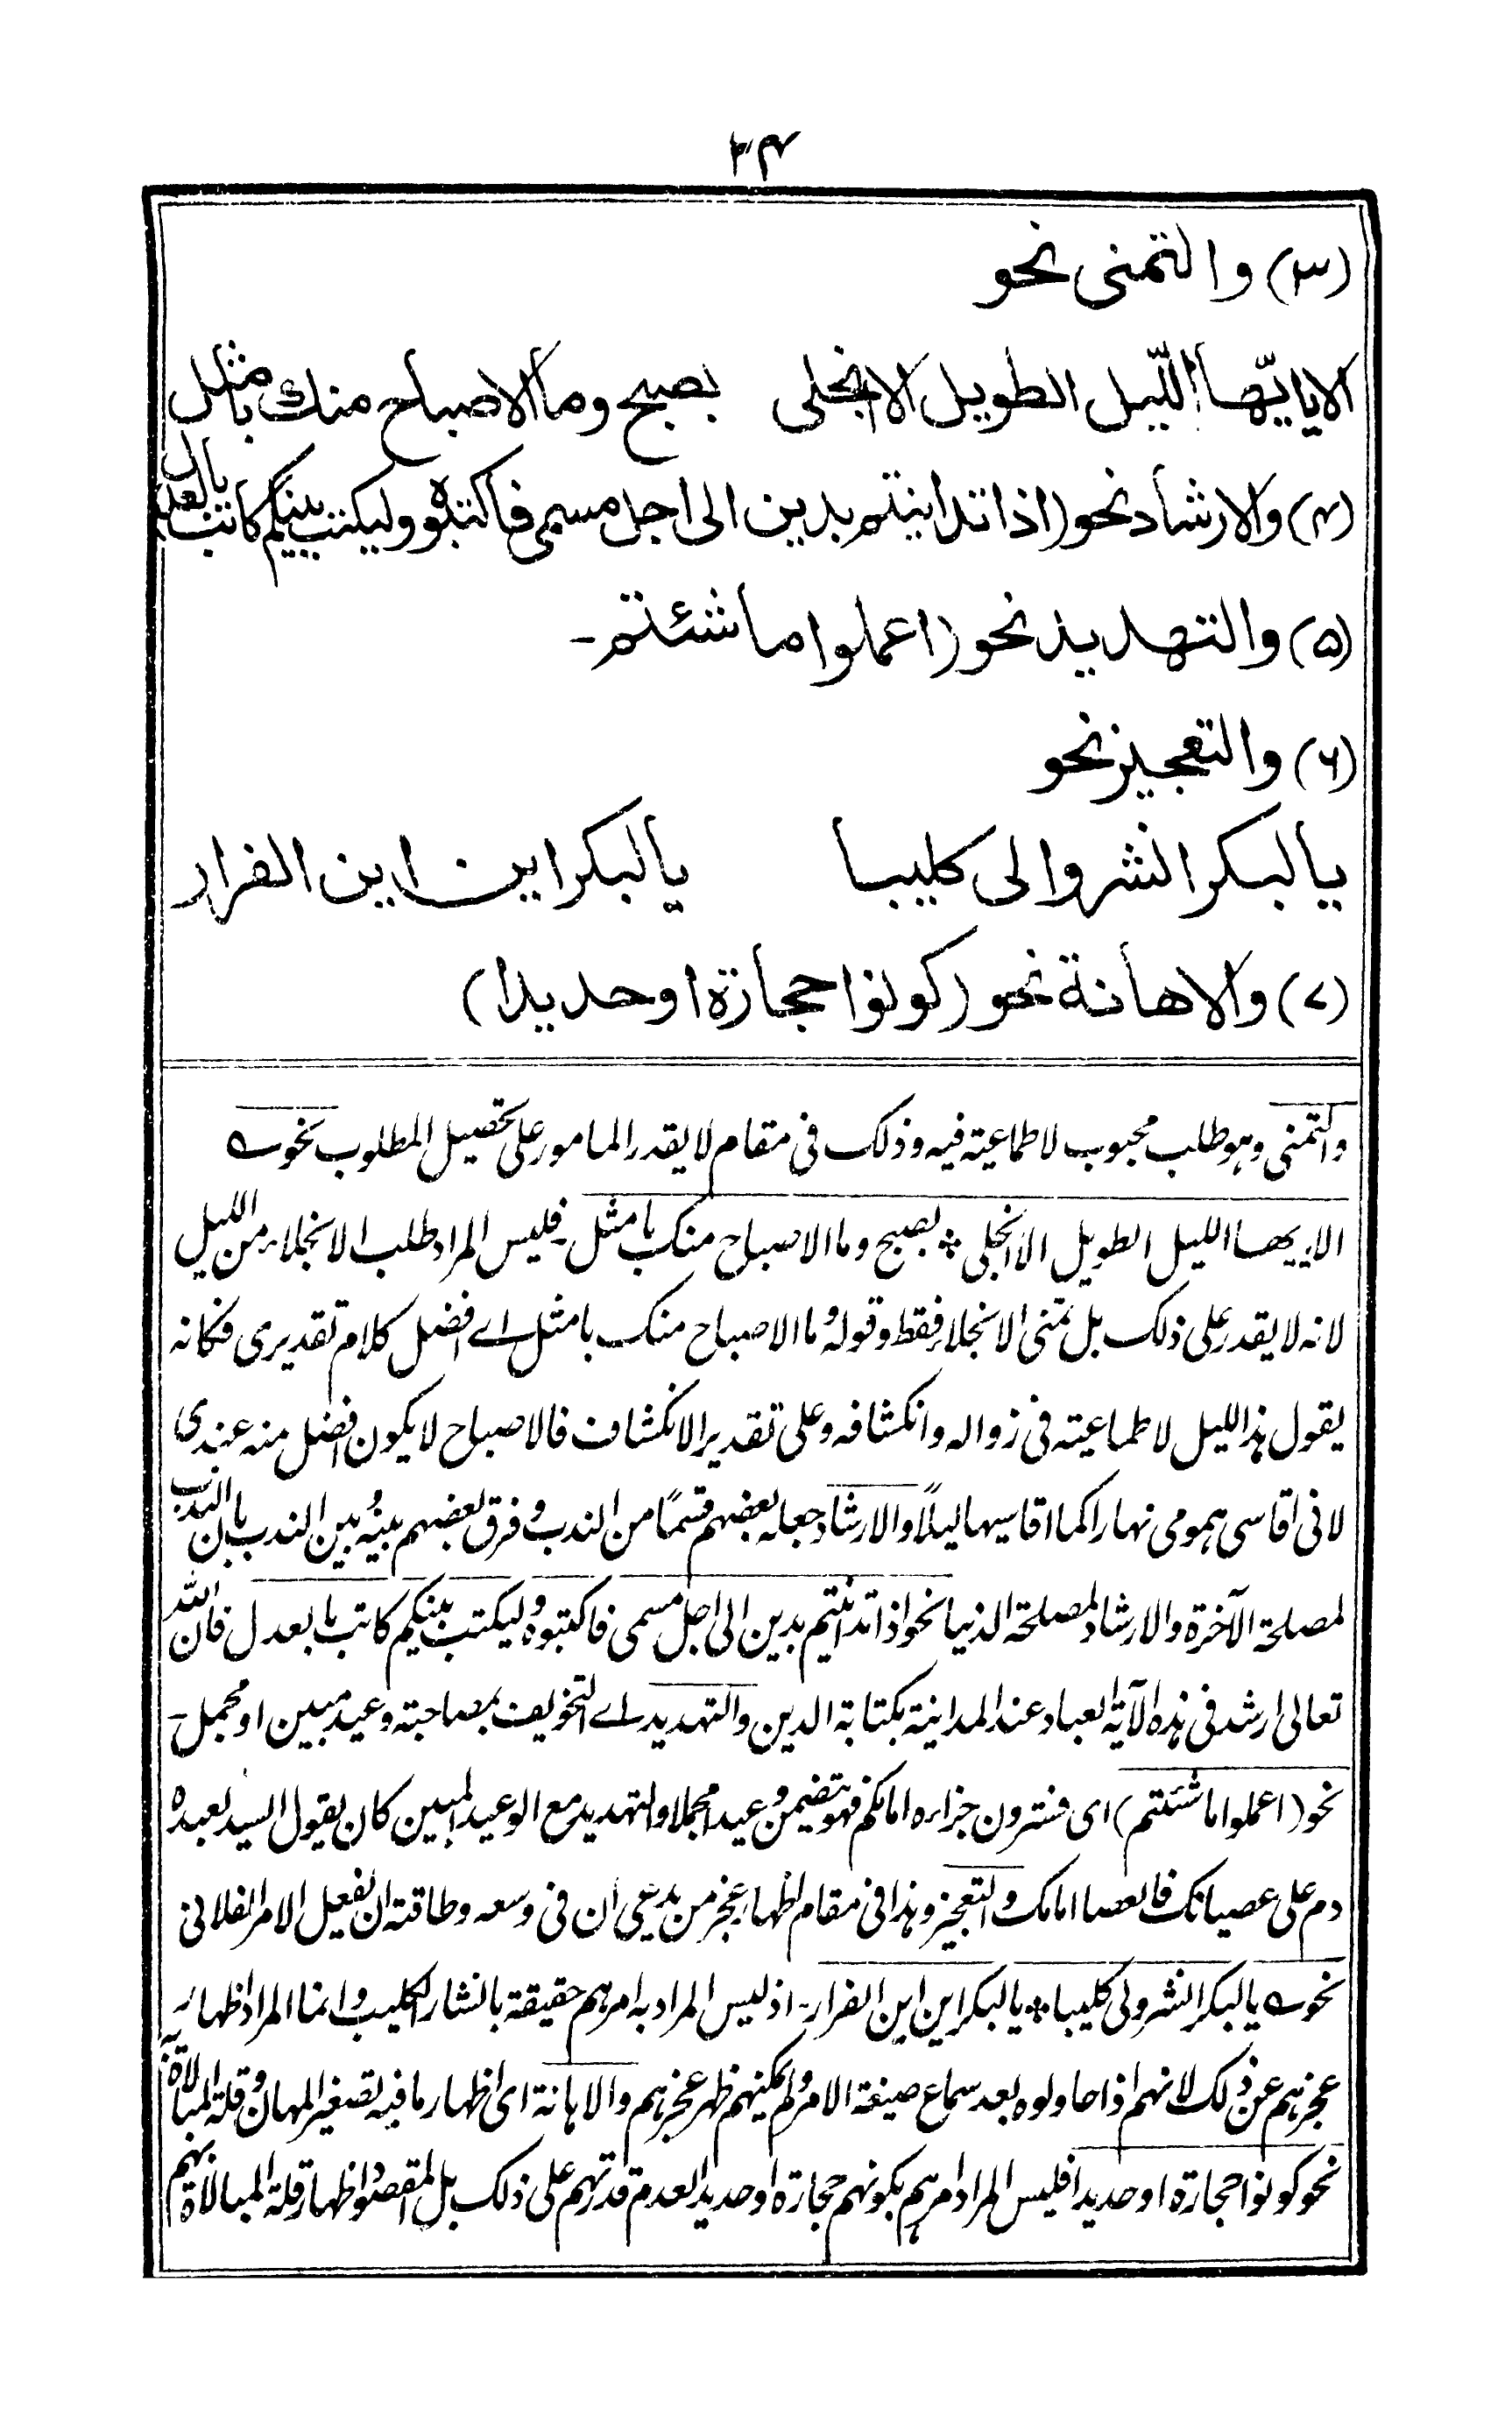 ۳۴
(۳) والتمنی نحو
الا یا ایّها اللّیل الطویل الا انجلی بصبح وما الاصباح منك بامثل
(۴) والارشاد نحو (اذا تداینتم بدین الی اجل مسمی فاکتبوه ولیکتب بینکم کاتب بالعدل)
(۵) والتهدید نحو (اعملوا ما شئتم-
(۶) والتعجیز نحو
یا لبکر انشروا لی کلیبا یا لبکر این این الفرار
(۷) والاهانة نحو (کونوا حجارة او حدیدا)
والتمنی وهو طلب محبوب لا طماعیة فیه وذلک فی مقام لا یقدر المامور علی تحصیل المطلوب نحو
الا ایها اللیل الطویل الا انجلی * بصبح وما الاصباح منک بامثل۔ فلیس المراد طلب الانجلاء من اللیل
لانه لا یقدر علی ذلک بل تمنی الانجلاء فقط وقوله وما الاصباح منک بامثل اے افضل کلام تقدیری فکانه
یقول هذا اللیل لا طماعیة فی زواله وانکشافه وعلی تقدیر الانکشاف فالاصباح لا یکون افضل منه عندی
لانی اقاسی همومی نهارا کما اقاسیها لیلاً والارشاد جعله بعضهم قسمًا من الندب وفرق بعضهم بینه وبین الندب بان الندب
لمصلحة الآخرة والارشاد لمصلحة الدنیا نحو اذا تداینتم بدین الی اجل مسمی فاکتبوه ولیکتب بینکم کاتب بالعدل فان الله
تعالی ارشد فی هذه الآیة العباد عند المداینة بکتابة الدین والتهدید اے التخویف بمصاحبة وعید مبین او مجمل۔
نحو (اعملوا ما شئتم) ای فسترون جزاءه امامکم فهو یتضمن وعیدا مجملا والتهدید مع الوعید المبین کان یقول السید لعبده
دم علی عصیانک فالعصا امامک والتعجیز وهذا فی مقام اظهار عجز من یدعی ان فی وسعه وطاقته ان یفعل الامر الفلانی
نحو یا لبکر انشروا لی کلیبا * یا لبکر این این الفرار۔ اذ لیس المراد به امرهم حقیقة بانشار الکلیب وانما المراد اظهار
عجزهم عن ذلک لانهم اذا حاولوه بعد سماع صیغة الامر ولم یمکنهم ظهر عجزهم والاهانة ای اظهار ما فیه تصغیر المهان وقلة المبالاة به
نحو کونوا حجارة او حدیدا فلیس المراد امرهم بکونهم حجارة او حدیدا لعدم قدرتهم علی ذلک بل المقصود اظهار قلة المبالاة بهم